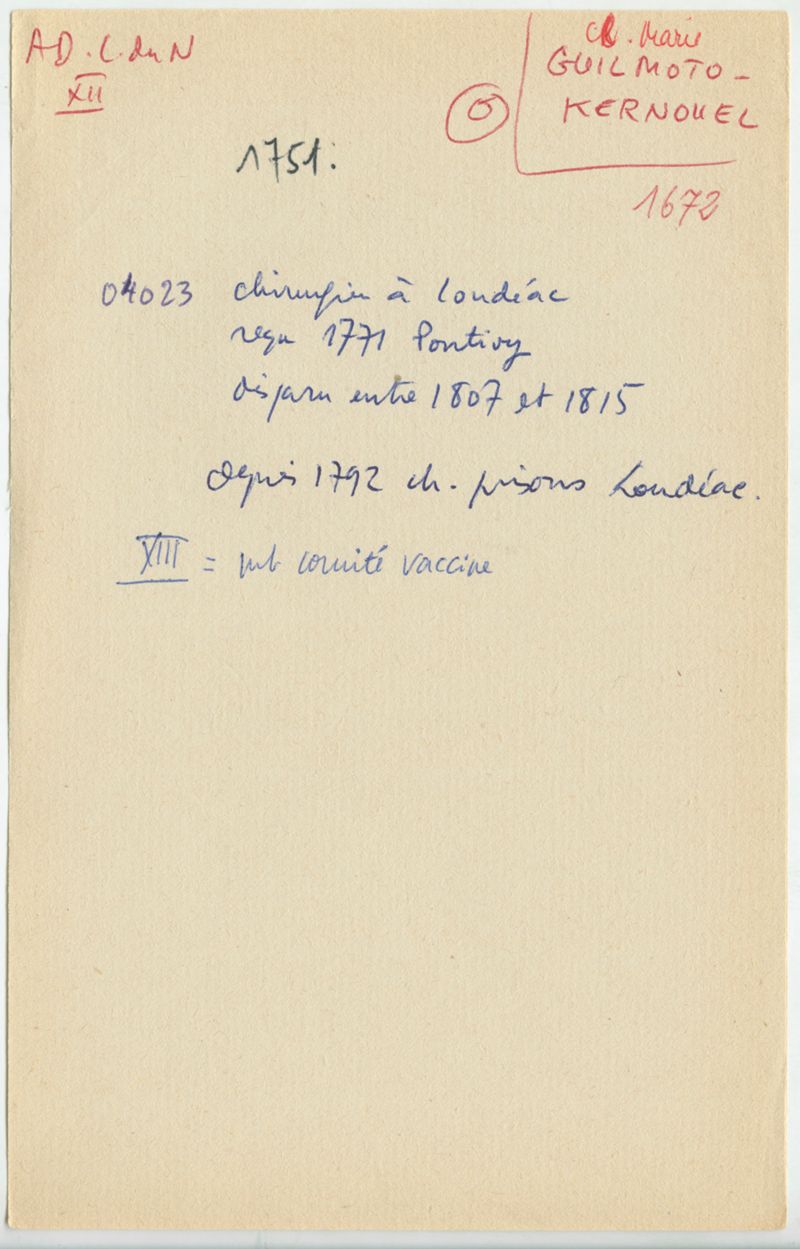 AD. C. du N
XII
Ch. Marie
GUILMOTO -
KERNOUEL
1672
1751.
04023 chirurgien à Loudéac
reçu 1771 Pontivy
disparu entre 1807 et 1815
depuis 1792 ch. prisons Loudéac.
XIII = mb comité vaccine